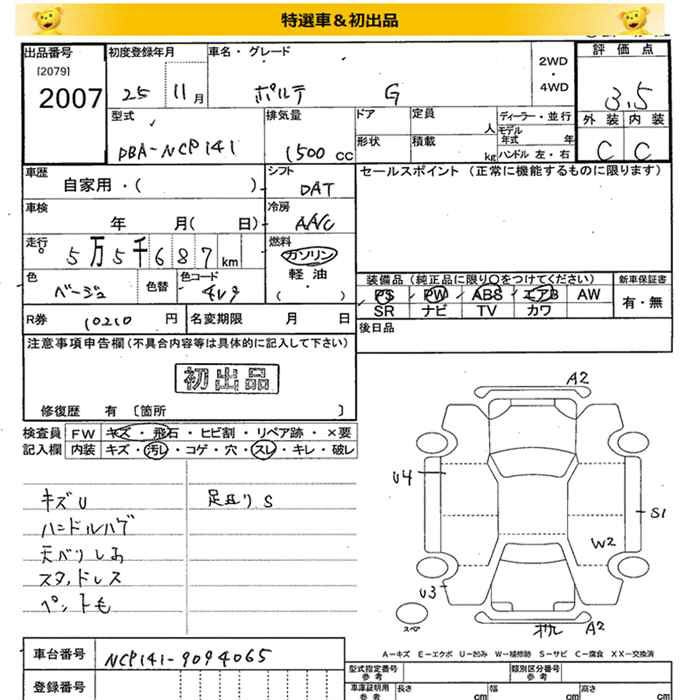 特選車&初出品
出品番号
[2079]
2007
初度登録年月
25 11月
車名・グレード
ポルテ G
2WD
・
4WD
評価点
3.5
外装 内装
C C
型式
DBA-NCP141
排気量
1500 cc
ドア
形状
定員
人
積載
kg
ディーラー・並行
モデル年式 年
ハンドル 左・右
車歴
自家用・( )
シフト
DAT
セールスポイント (正常に機能するものに限ります)
車検
年 月( 日)
冷房
A/C
走行
5万5千687km
燃料
ガソリン
軽油
( )
色
ベージュ
色替
色コード
4V9
装備品 (純正品に限り〇をつけてください)
PS PW ABS エアB AW
SR ナビ TV カワ
新車保証書
有・無
R券 10210 円
名変期限 月 日
後日品
注意事項申告欄(不具合内容等は具体的に記入して下さい)
初出品
修復歴 有 〔箇所 〕
検査員記入欄
FW キズ・飛石・ヒビ割・リペア跡・×要
内装 キズ・汚レ・コゲ・穴・スレ・キレ・破レ
キズU
足廻りS
ハンドルハゲ
天ベリしあ
スタッドレス
A2
U4
S1
W2
U3
A2
スペア
A−キズ E−エクボ U−凹み W−補修跡 S−サビ C−腐食 XX−交換済
車台番号 NCP141-9094065
登録番号
型式指定番号
参考
類別区分番号
参考
車庫証明用
参考
長さ cm
幅 cm
高さ cm